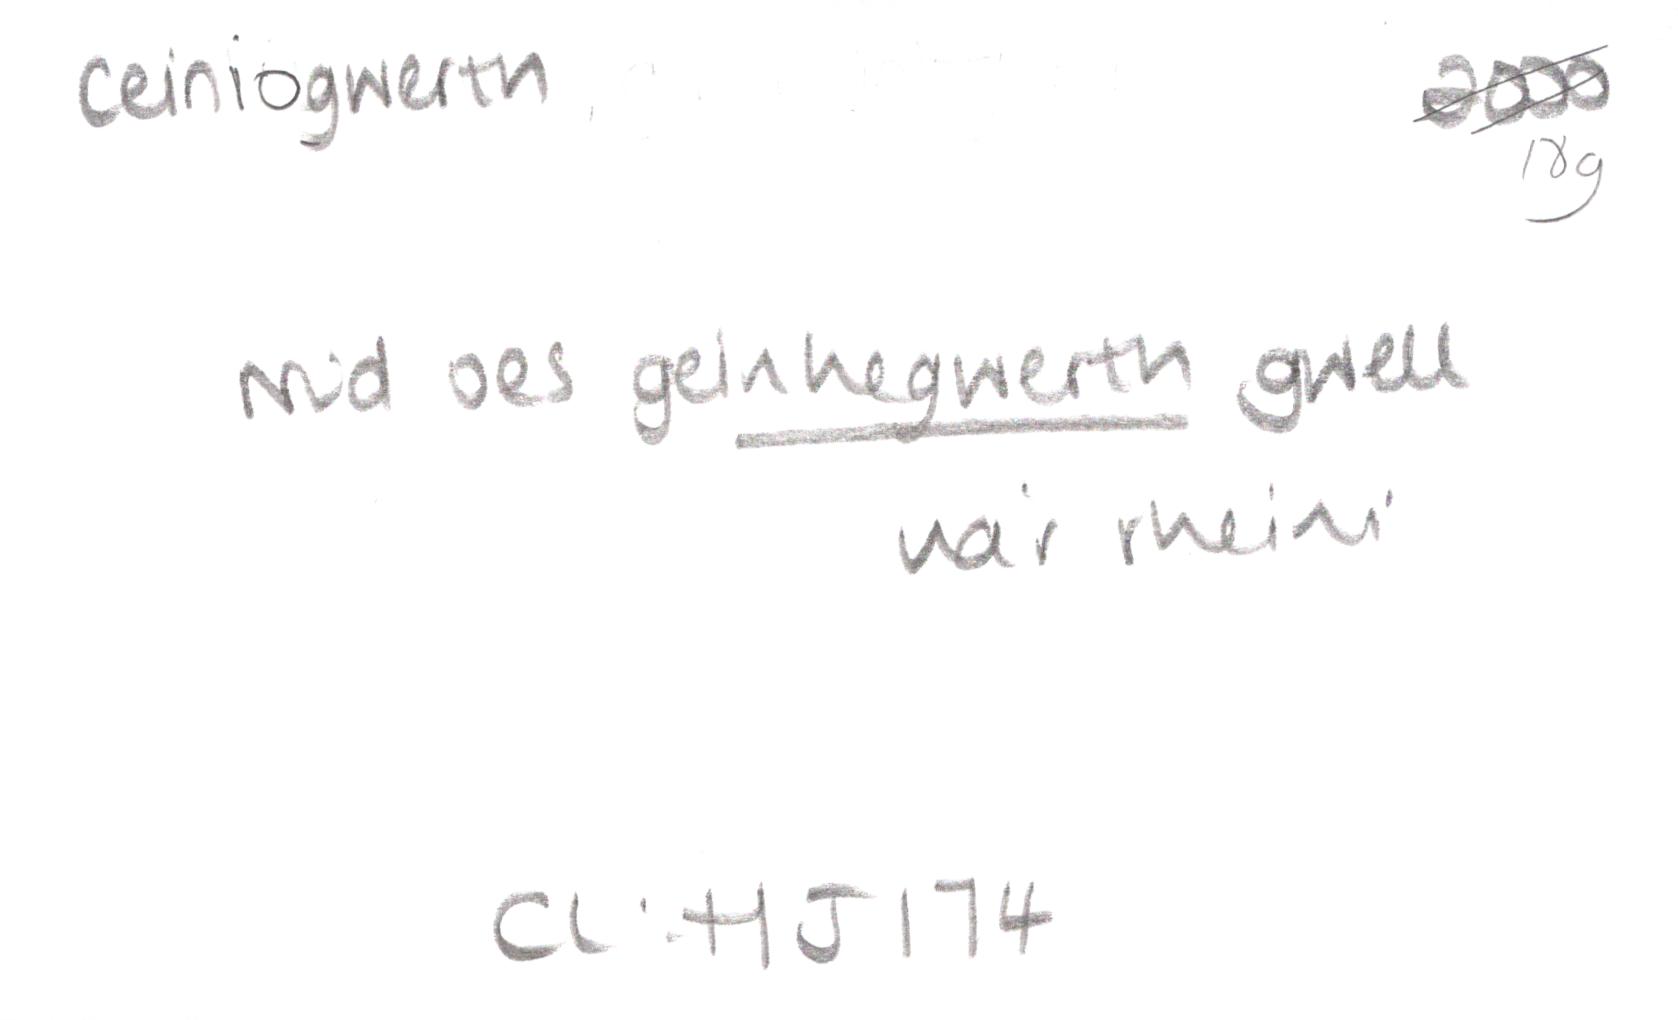 ceiniogwerth
2000
18g
Nid oes geinhegwerth gwell
na'r rheini
CL: HJ 174